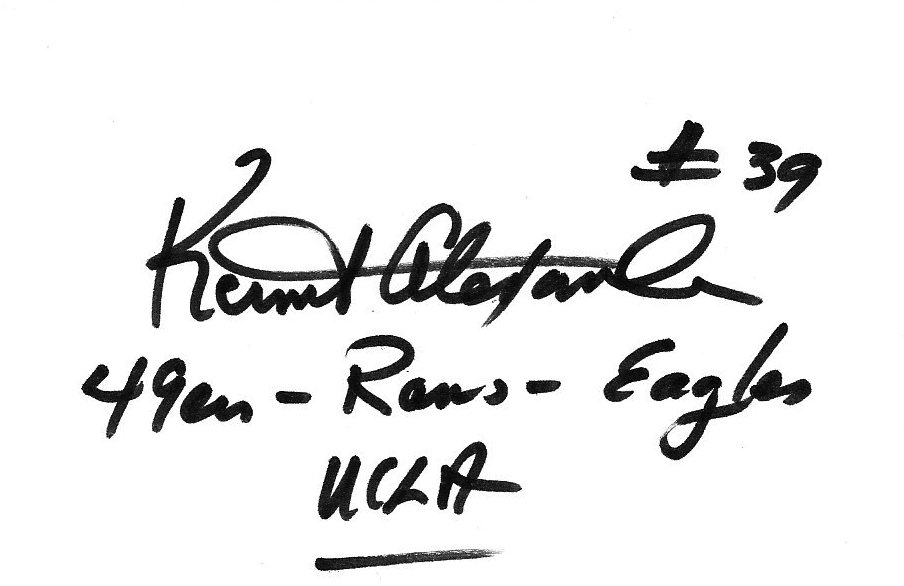 # 39
Kermit Alexander
49ers - Rams - Eagles
UCLA